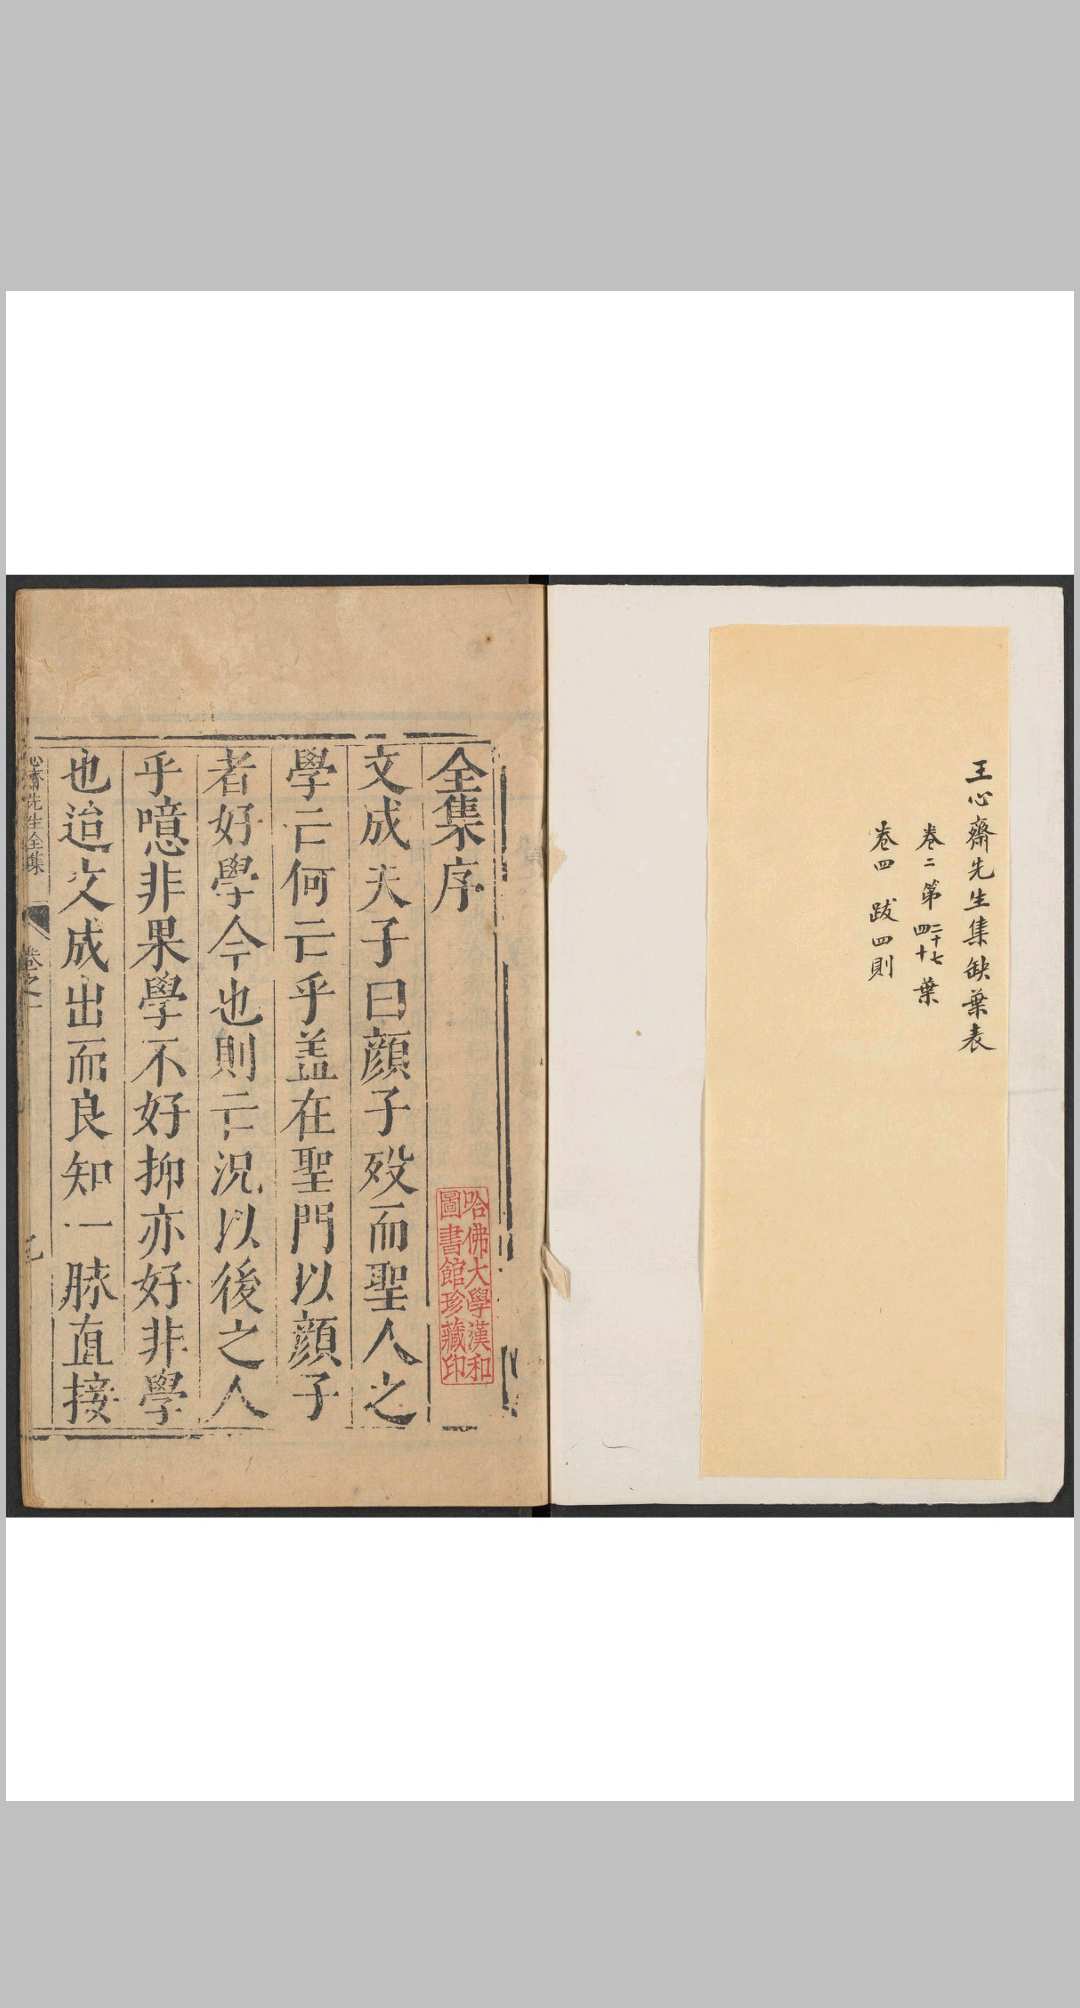 王心齋先生集缺葉表
卷二 第二十七 四十 葉
卷四 跋四則
全集序
哈佛大學漢和
圖書館珍藏印
文成夫子曰顏子歿而聖人之
學亡何亡乎葢在聖門以顏子
者好學今也則亡況以後之人
乎噫非果學不好抑亦好非學
也迨文成出而良知一脉直接
心齋先生全集 卷之一